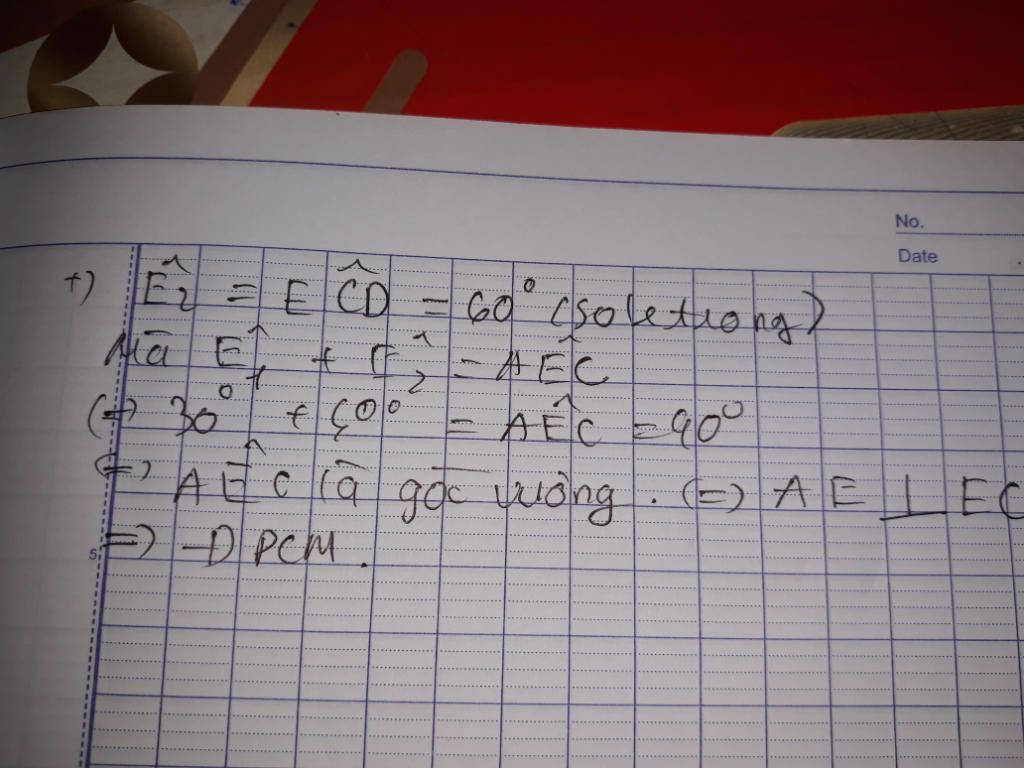 No.
Date
+) Ê₂ = EĈD = 60° (so le trong)
Mà Ê₁ + Ê₂ = AÊC
(=) 30° + 60° = AÊC = 90°
(=) AÊC là góc vuông. (=) AE ⊥ EC
5 =) ĐPCM.